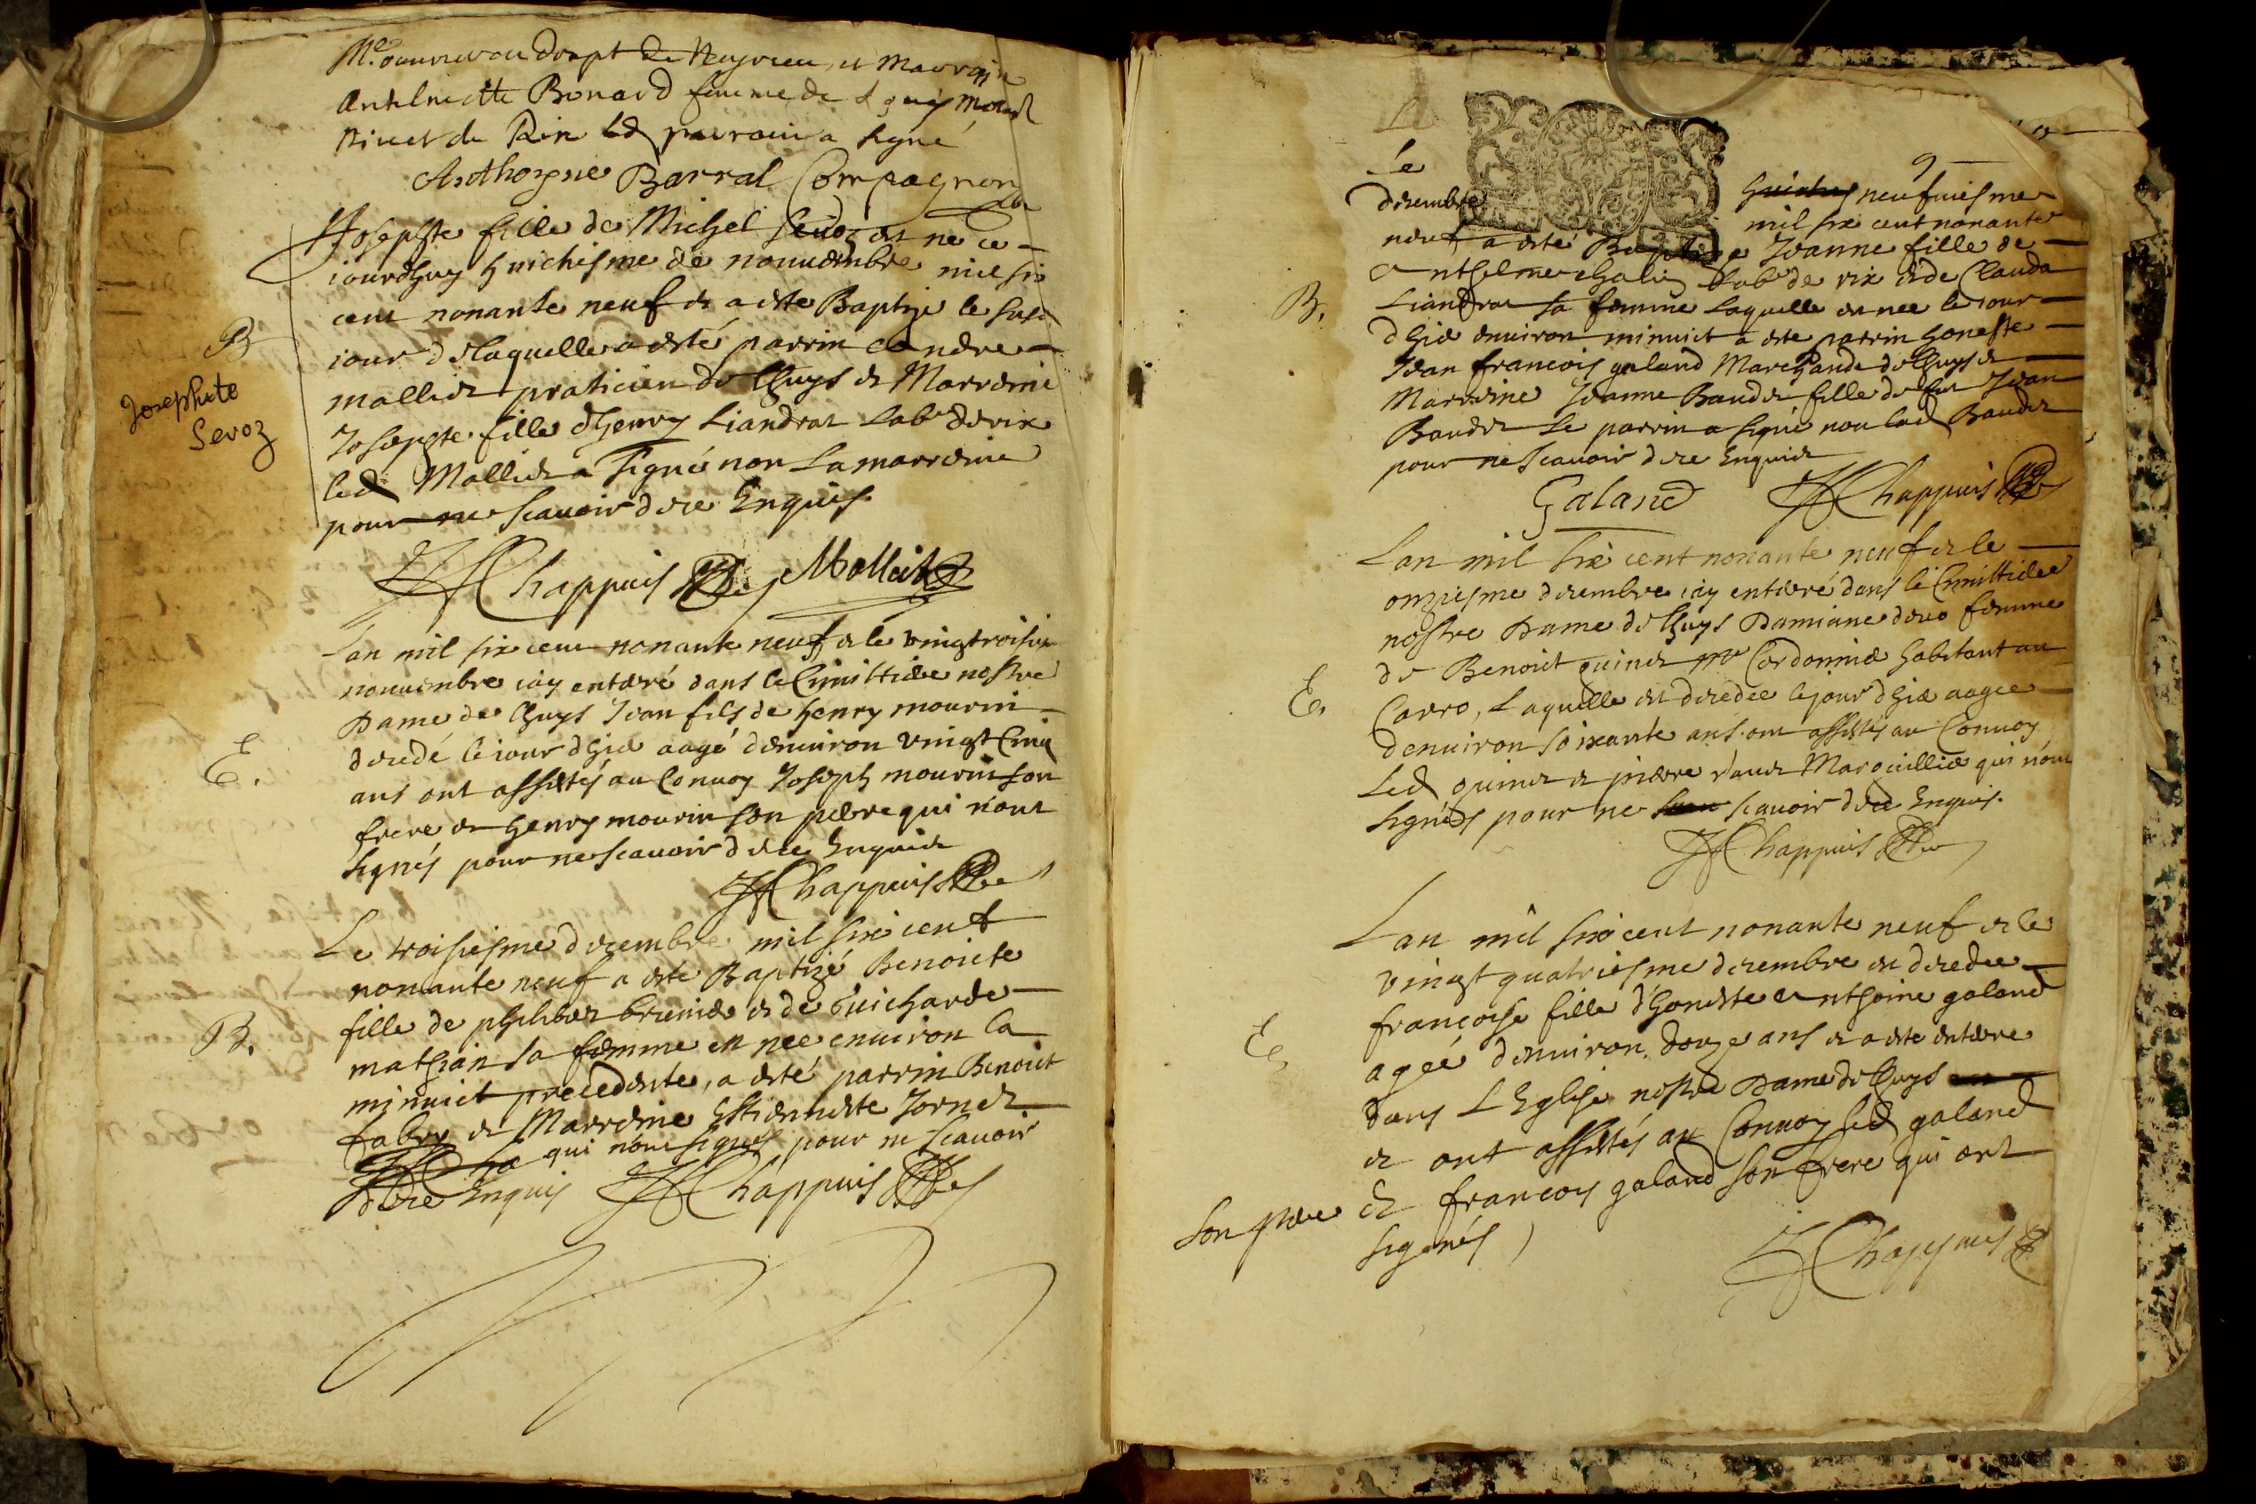 Me ouurier en drapt de Neyrieu, et Marraine
Anthelmette Bonard femme de Louys
Niuet de Rix led parrain a signé
Anthoyne Barral Compagnon
Josephte fille de Michel Seuoz est née ce
iourdhuy huictiesme de nouuembre mil six
cent nonante neuf et a esté Baptizé le susd
iour de laquelle a esté parrin andre
mallict praticien de lhuys et Marreine
Josephte fille dhenry Liandrat Labr de rix
led Mallict a signé non la marreine
pour ne scauoir de ce Enquis
B
Josephte
Sevoz
JfChappuis Mallict
Lan mil six cent nonante neuf et le vingtroisie
nouuembre iay enterré dans le Cimittiere nostre
Dame de lhuys Jean fils de henry mourin
decedé le iour dhier aagé denuiron vingt Cinq
ans ont assistés au Conuoy Joseph mourin son
frere et henry mourin son pere qui nont
signés pour ne scauoir de ce Enquis
E.
JfChappuis
Le troisiesme decembre mil six cent
nonante neuf a esté Baptizé Benoicte
fille de philibert et de Guicharde
mathian sa femme et nee enuiron la
minuict precedente, a esté parrin Benoict
fabry et Marreine Estiennette Jornet
qui nont signés pour ne scauoir
de ce Enquis JfChappuis
B.
9
Le neufuiesme
decembre mil six cent nonante
neuf a esté Baptizé Jeanne fille de
anthelme chalin Labr de rix et de Clauda
Liandrat sa femme laquelle est nee le iour
dhier enuiron minuict a esté parrin honeste
Jean francois galand Marchand de lhuys et
Marreine Jeanne Baudet fille de feu Jean
Baudet Le parrin a signé non lad Baudet
pour ne scauoir de ce Enquise
B.
Galand JfChappuis
Lan mil six cent nonante neuf et le
onziesme decembre iay enterré dans le Cimittiere
nostre Dame de lhuys Damiane femme
de Benoict quinet me Cordonnier habitant au
Carro, Laquelle est decedee le jour dhier aagee
denuiron soixante ans ont assistés au Conuoy
Led quinet et pierre Marguillier qui nont
signéds pour ne scauoir de ce Enquis.
E.
JfChappuis
Lan mil six cent nonante neuf et le
vingt quatriesme decembre est decedee
françoise fille dhoneste anthoine galand
agée denuiron douze ans et a esté enterre
dans L Eglise nostre Dame de lhuys
et ont assistés au Conuoy led galand
son pere et francoys galand son frere qui ont
signés
E.
JfChappuis